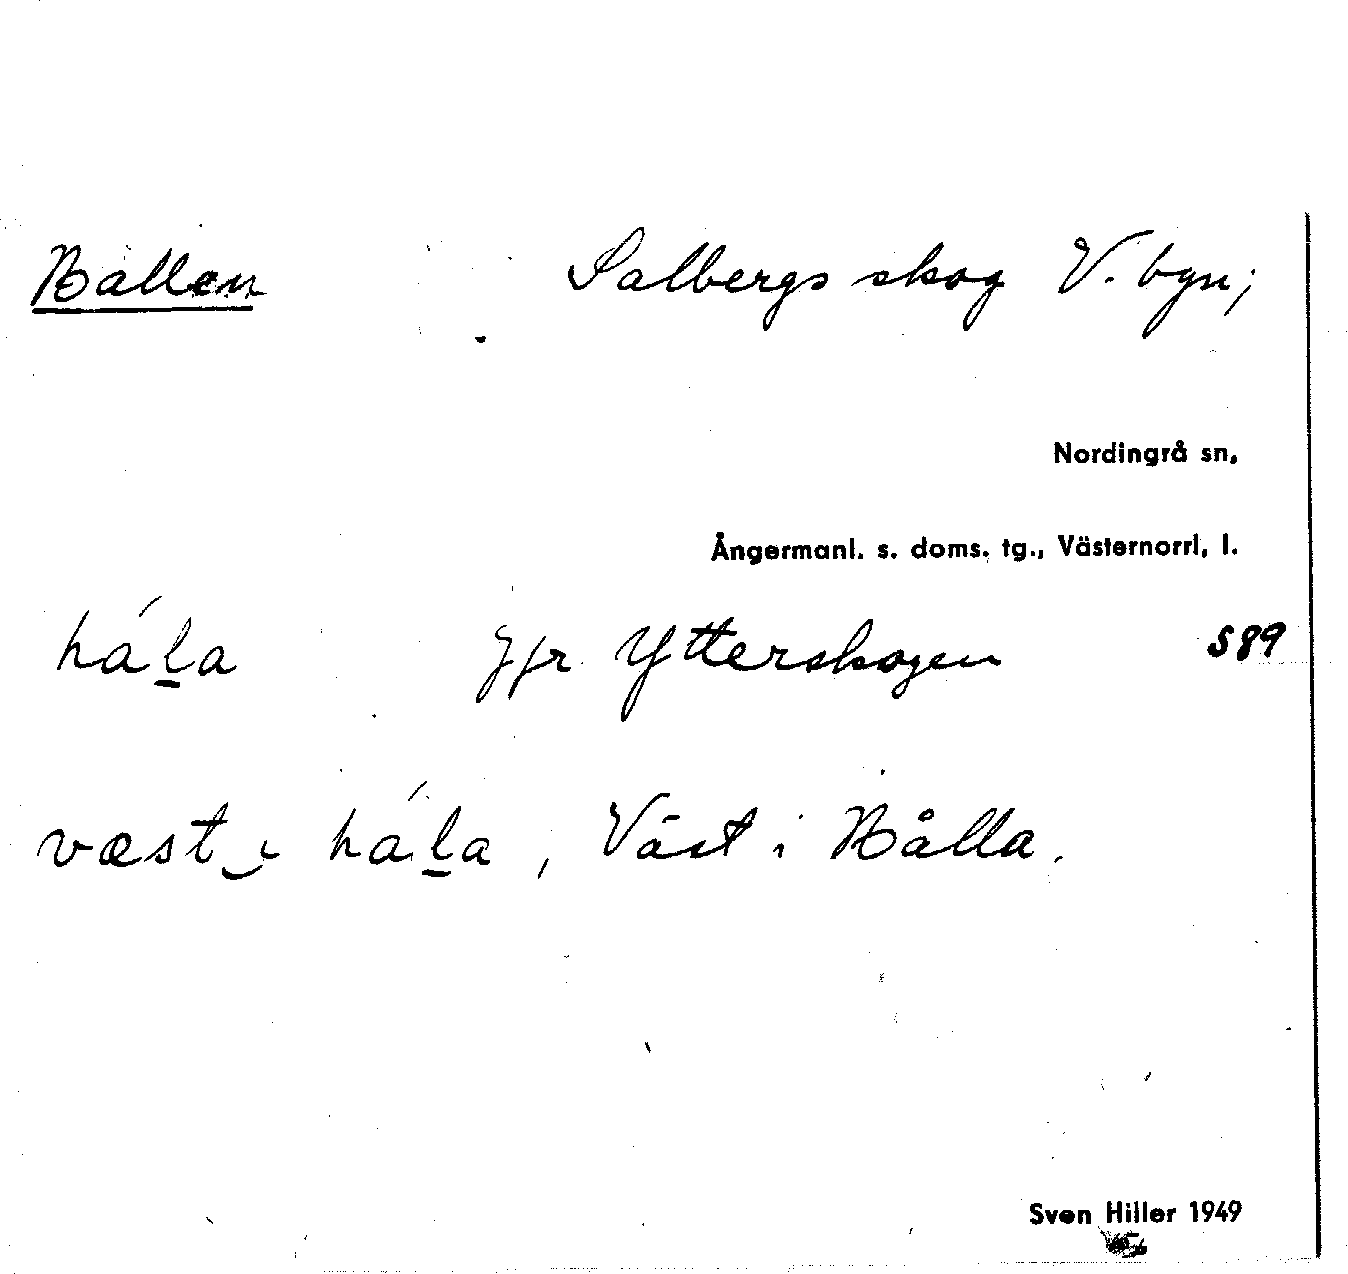 Hållen Salbergs skog V. byn;
Nordingrå sn,
Ångermanl. s. doms. tg., Västernorrl. l.
há l̠a Jfr Ytterskogen S89
væst i há l̠a, Väst i Hålla.
Sven Hiller 1949